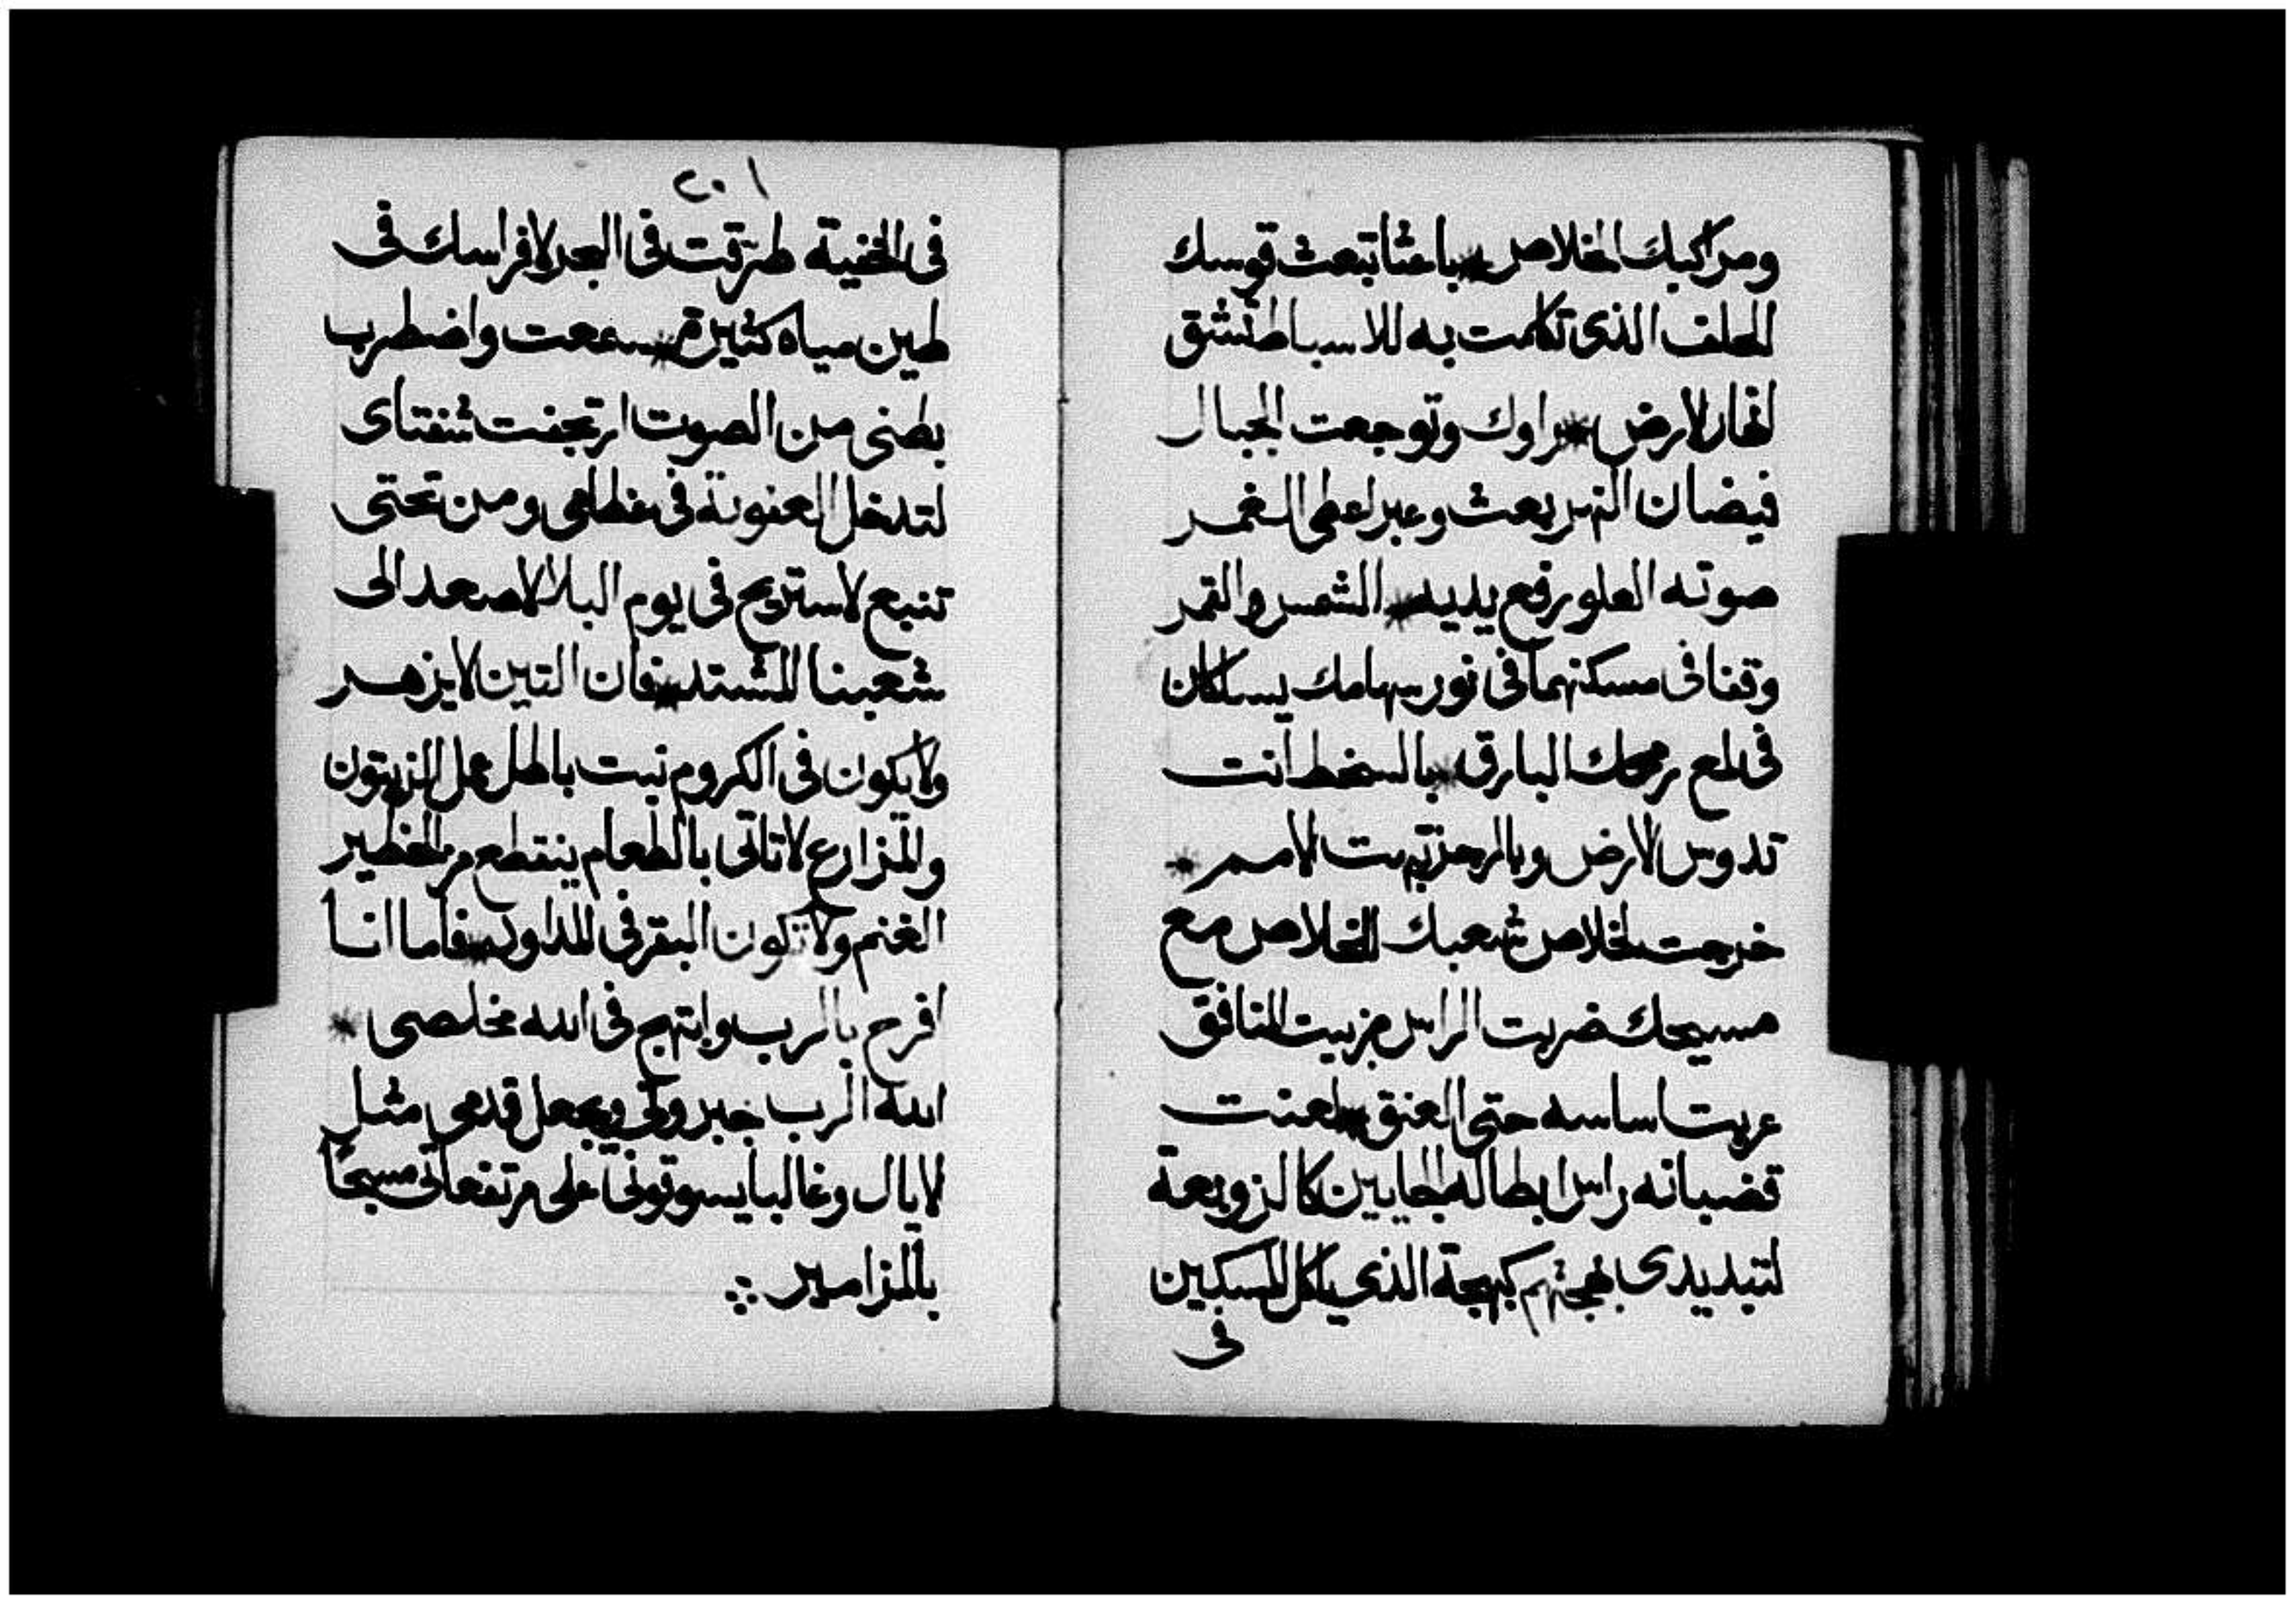 ومراكبك الخلاص * باعثا تبعث قوسك
الحلف الذى تكلمت به للاسباط تشق
انهار الارض * راوك وتوجعت الجبال
فيضان النهر يبعث وعبر اعطى الغمر
صوته العلو رفع يديه * الشمس والقمر
وقفا فى مسكنهما فى نور سهامك يسلكان
فى لمع رمحك البارق * بالسخط انت
تدوس الارض وبالرجز تبهت الامم *
خرجت لخلاص شعبك للخلاص مع
مسيحك ضربت الراس من بيت المنافق
عريت اساسه حتى العنق * لعنت
قضبانه راس ابطاله الجايين كالزوبعة
لتبديدى بهجتهم كبهجة الذى ياكل المسكين
فى
٢٠١
فى الخفية طرقت فى البحر لافراسك فى
طين مياه كثيرة * سمعت واضطرب
بطنى من الصوت ارتجفت شفتاى
لتدخل العفونة فى عظامى ومن تحتى
تنبع لاستريح فى يوم البلا لاصعد الى
شعبنا المشتد * فان التين لا يزهر
ولا يكون فى الكروم نبت باطل عمل الزيتون
والمزارع لا تاتى بالطعام ينقطع من الحظير
الغنم ولا تكون البقر فى المداود * فاما انا
افرح بالرب وابتهج فى الله مخلصى *
الله الرب جبروتى ويجعل قدمى مثل
الايال وغالبا يسوقونى على مرتفعاتى مسبحًا
بالمزامير